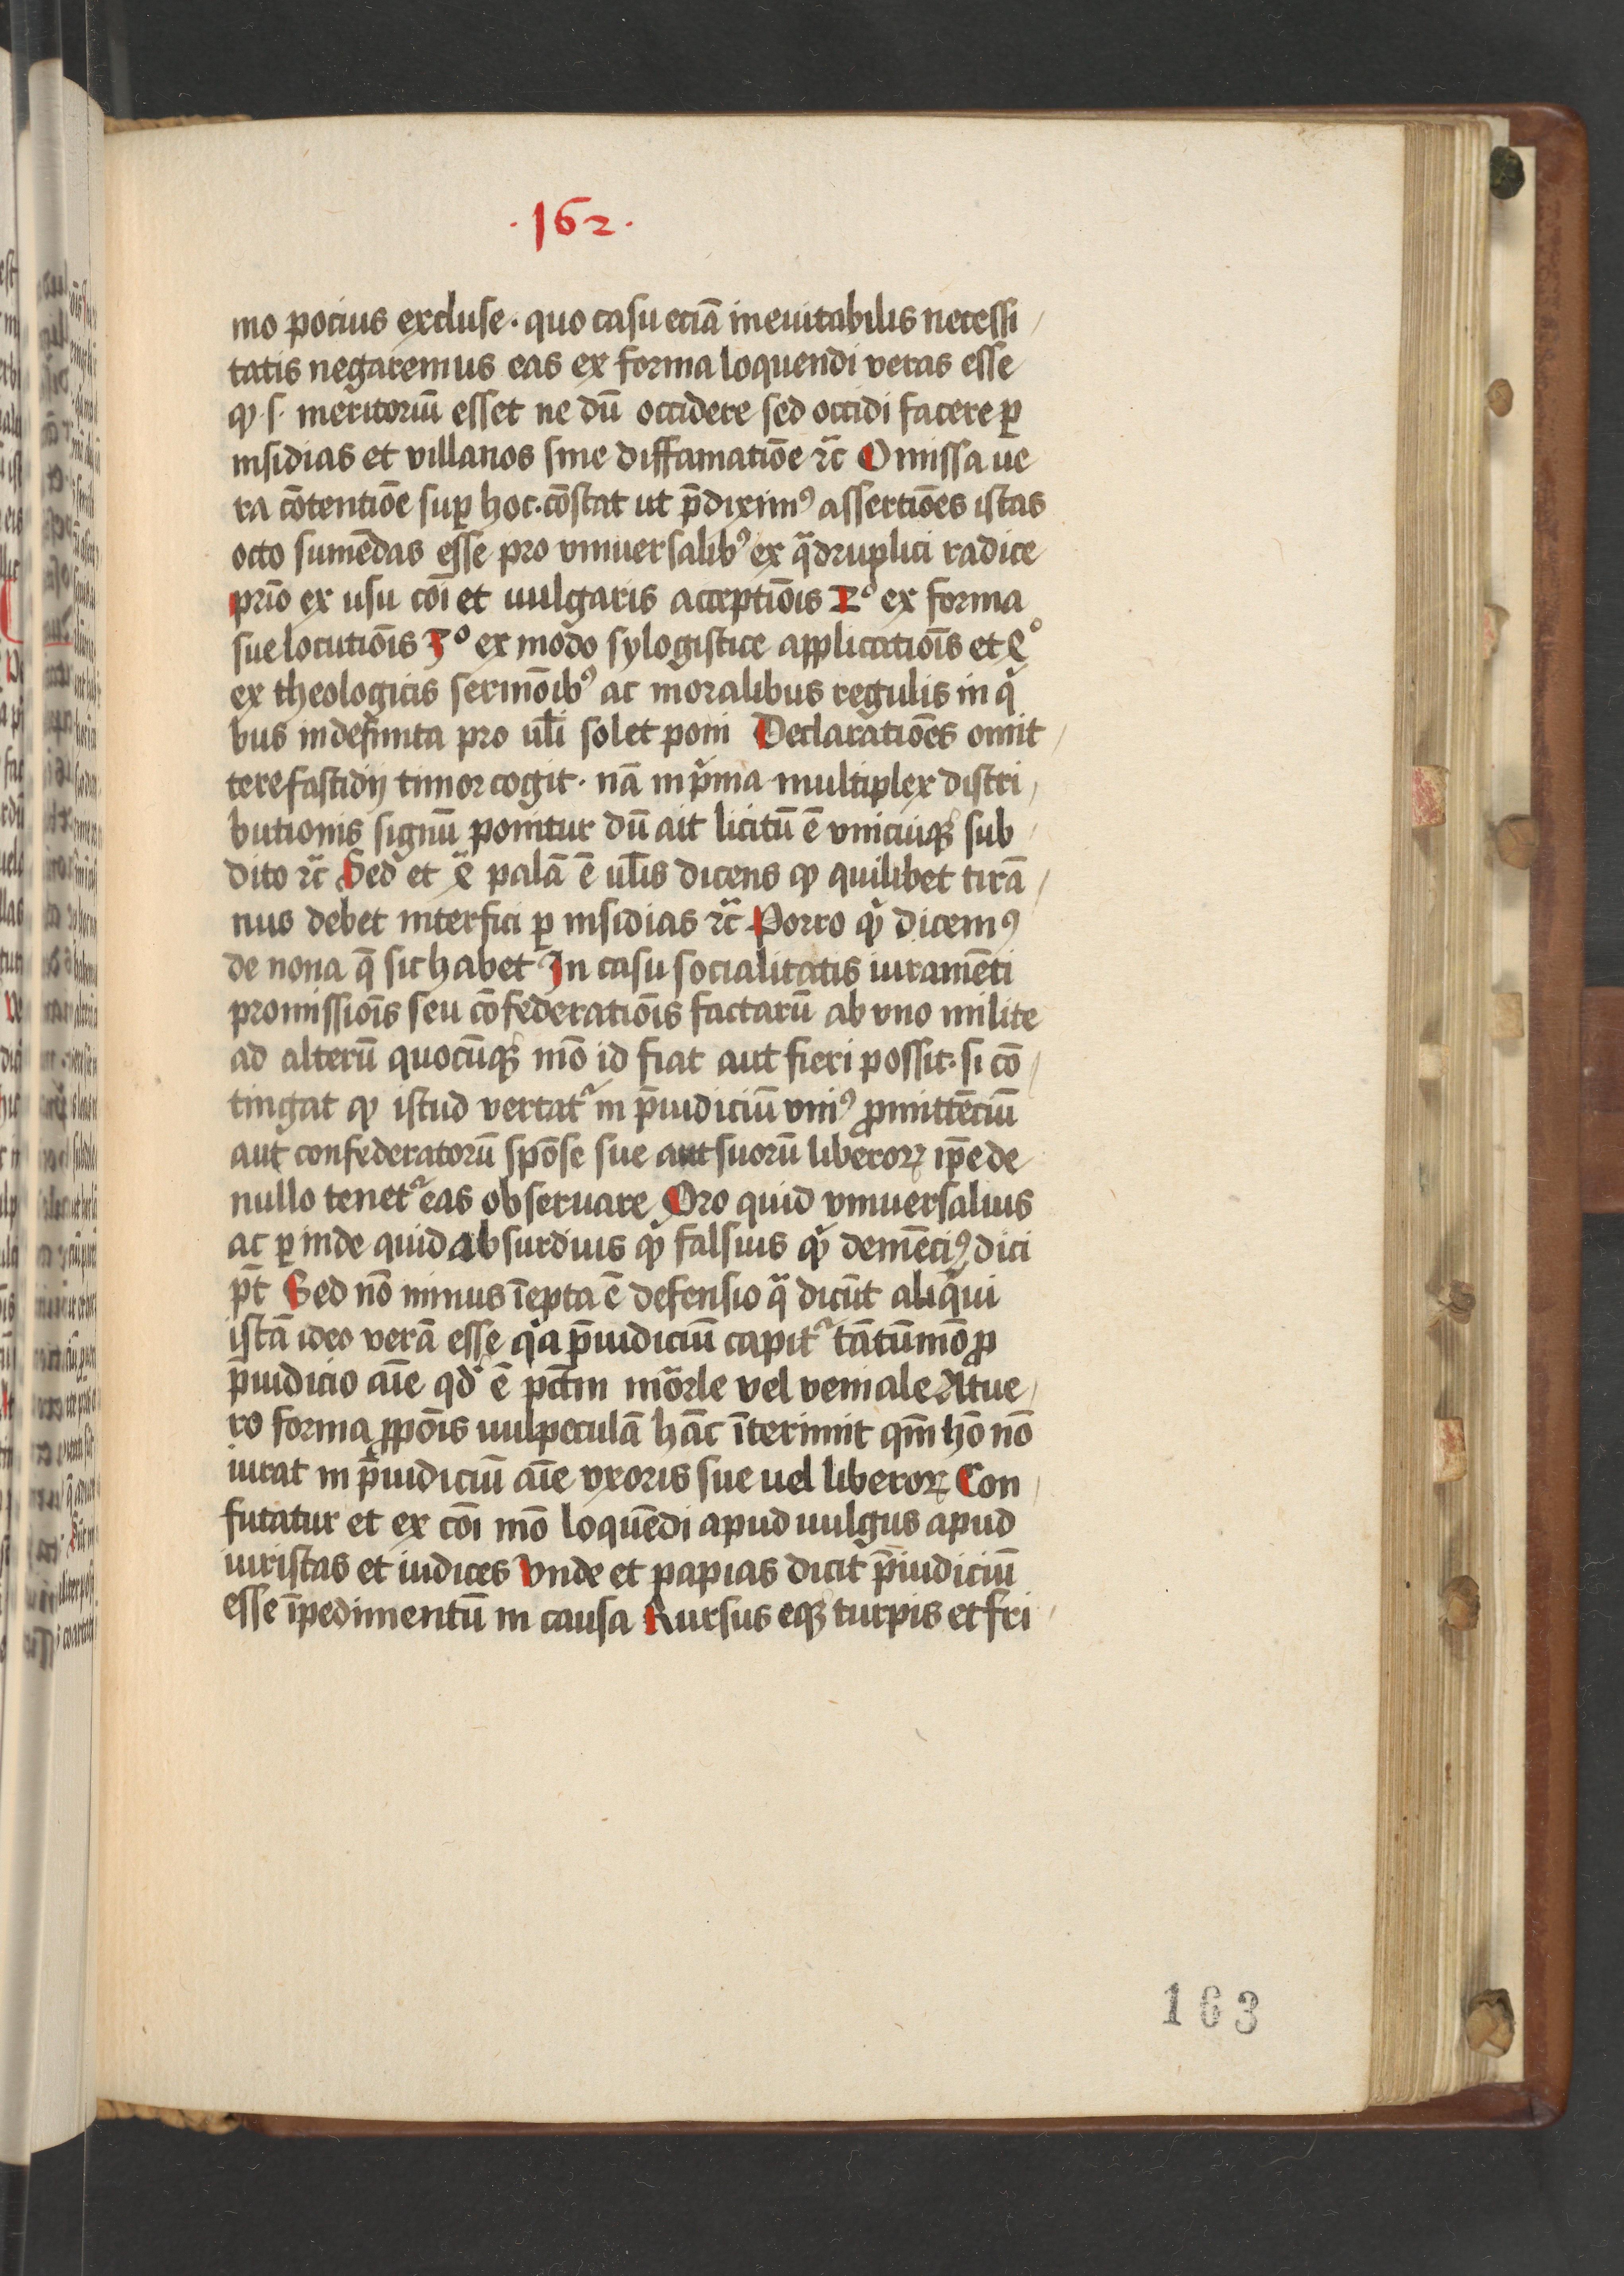 ·162·
mo pocius excluse · quo casu eciā ineuitabilis necessi
tatis negaremus eas ex forma loquendi veras esse
ꝙ · s · meritoriū esset ne dū occidere sed occidi facere ꝑ
insidias et villanos sine diffamatiōe ⁊c̄ Omissa ue
ra cōtentiōe suꝑ hoc · cōstat ut p̄diximꝰ assertiōes istas
octo sumēdas esse pro vniuersalibꝰ ex qᷓdruplici radice
prīo ex usu cōi et uulgaris acceptiōis 2º ex forma
sue locutiōis 3º ex modo sylogistice applicatiōis et 4º
ex theologicis sermōibꝰ ac moralibus regulis in qͥ
bus indefinita pro ul̄i solet poni Declaratiōes omit
tere fastidij timor cogit · nā in pͥma multiplex distri
butionis signū ponitur dū ait licitū ē vnicuiqꝫ sub
dito ⁊c̄ Sed et 4ᷓ palā ē ul̄is dicens ꝙ quilibet tirā
nus debet interfici ꝑ insidias ⁊c̄ Porro qͥd dicemꝰ
de nona q̄ sic habet In casu socialitatis iuramēti
promissiōis seu cōfederatiōis factarū ab vno milite
ad alterū quocūqꝫ mō id fiat aut fieri possit · si cō
tingat ꝙ istud vertatᷣ in p̄iudiciū vniꝰ ꝓmittēciū
aut confederatorū spōse sue aut suorū liberoꝝ ip̄e de
nullo tenetᷣ eas obseruare Oro quid vniuersalius
ac ꝑ inde quid absurdius qͥd falsius qͥd demēciꝰ dici
pt̄ Sed nō minus īepta ē defensio qᷓ dicūt aliqui
istā ideo verā esse qͥa p̄iudiciū capitᷣ tātūmō ꝓ
p̄iudicio aīe qd̄ ē pctm̄ mōrle vel veniale At ue
ro forma ꝓpōis uulpeculā hāc īterimit qm̄ hō nō
iurat in p̄iudiciū aīe vxoris sue uel liberoꝝ Con
futatur et ex cōi mō loquēdi apud uulgus apud
iuristas et iudices Vnde et papias dicit p̄iudiciū
esse īpedimentū in causa Rursus eqꝫ turpis et fri
163